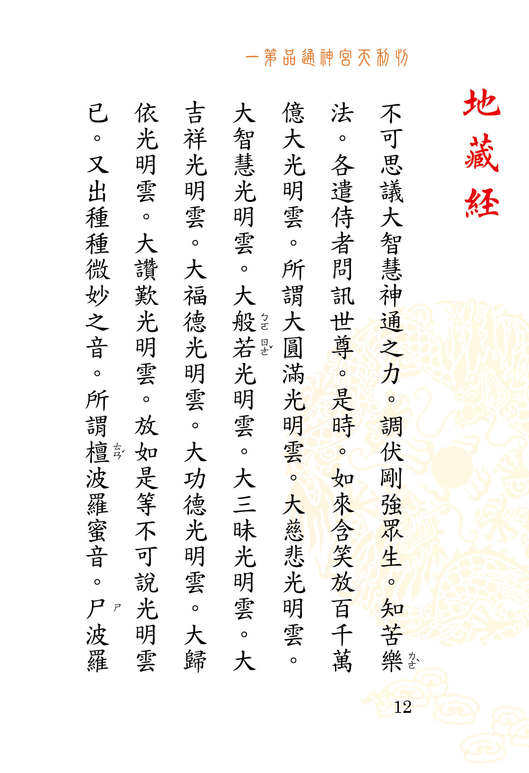 地藏經
忉利天宮神通品第一
不可思議大智慧神通之力。調伏剛強眾生。知苦樂ㄌㄜˋ
法。各遣侍者問訊世尊。是時。如來含笑放百千萬
億大光明雲。所謂大圓滿光明雲。大慈悲光明雲。
大智慧光明雲。大般ㄅㄛ若ㄖㄜˇ光明雲。大三昧光明雲。大
吉祥光明雲。大福德光明雲。大功德光明雲。大歸
依光明雲。大讚歎光明雲。放如是等不可說光明雲
已。又出種種微妙之音。所謂檀ㄊㄢˊ波羅蜜音。尸ㄕ波羅
12